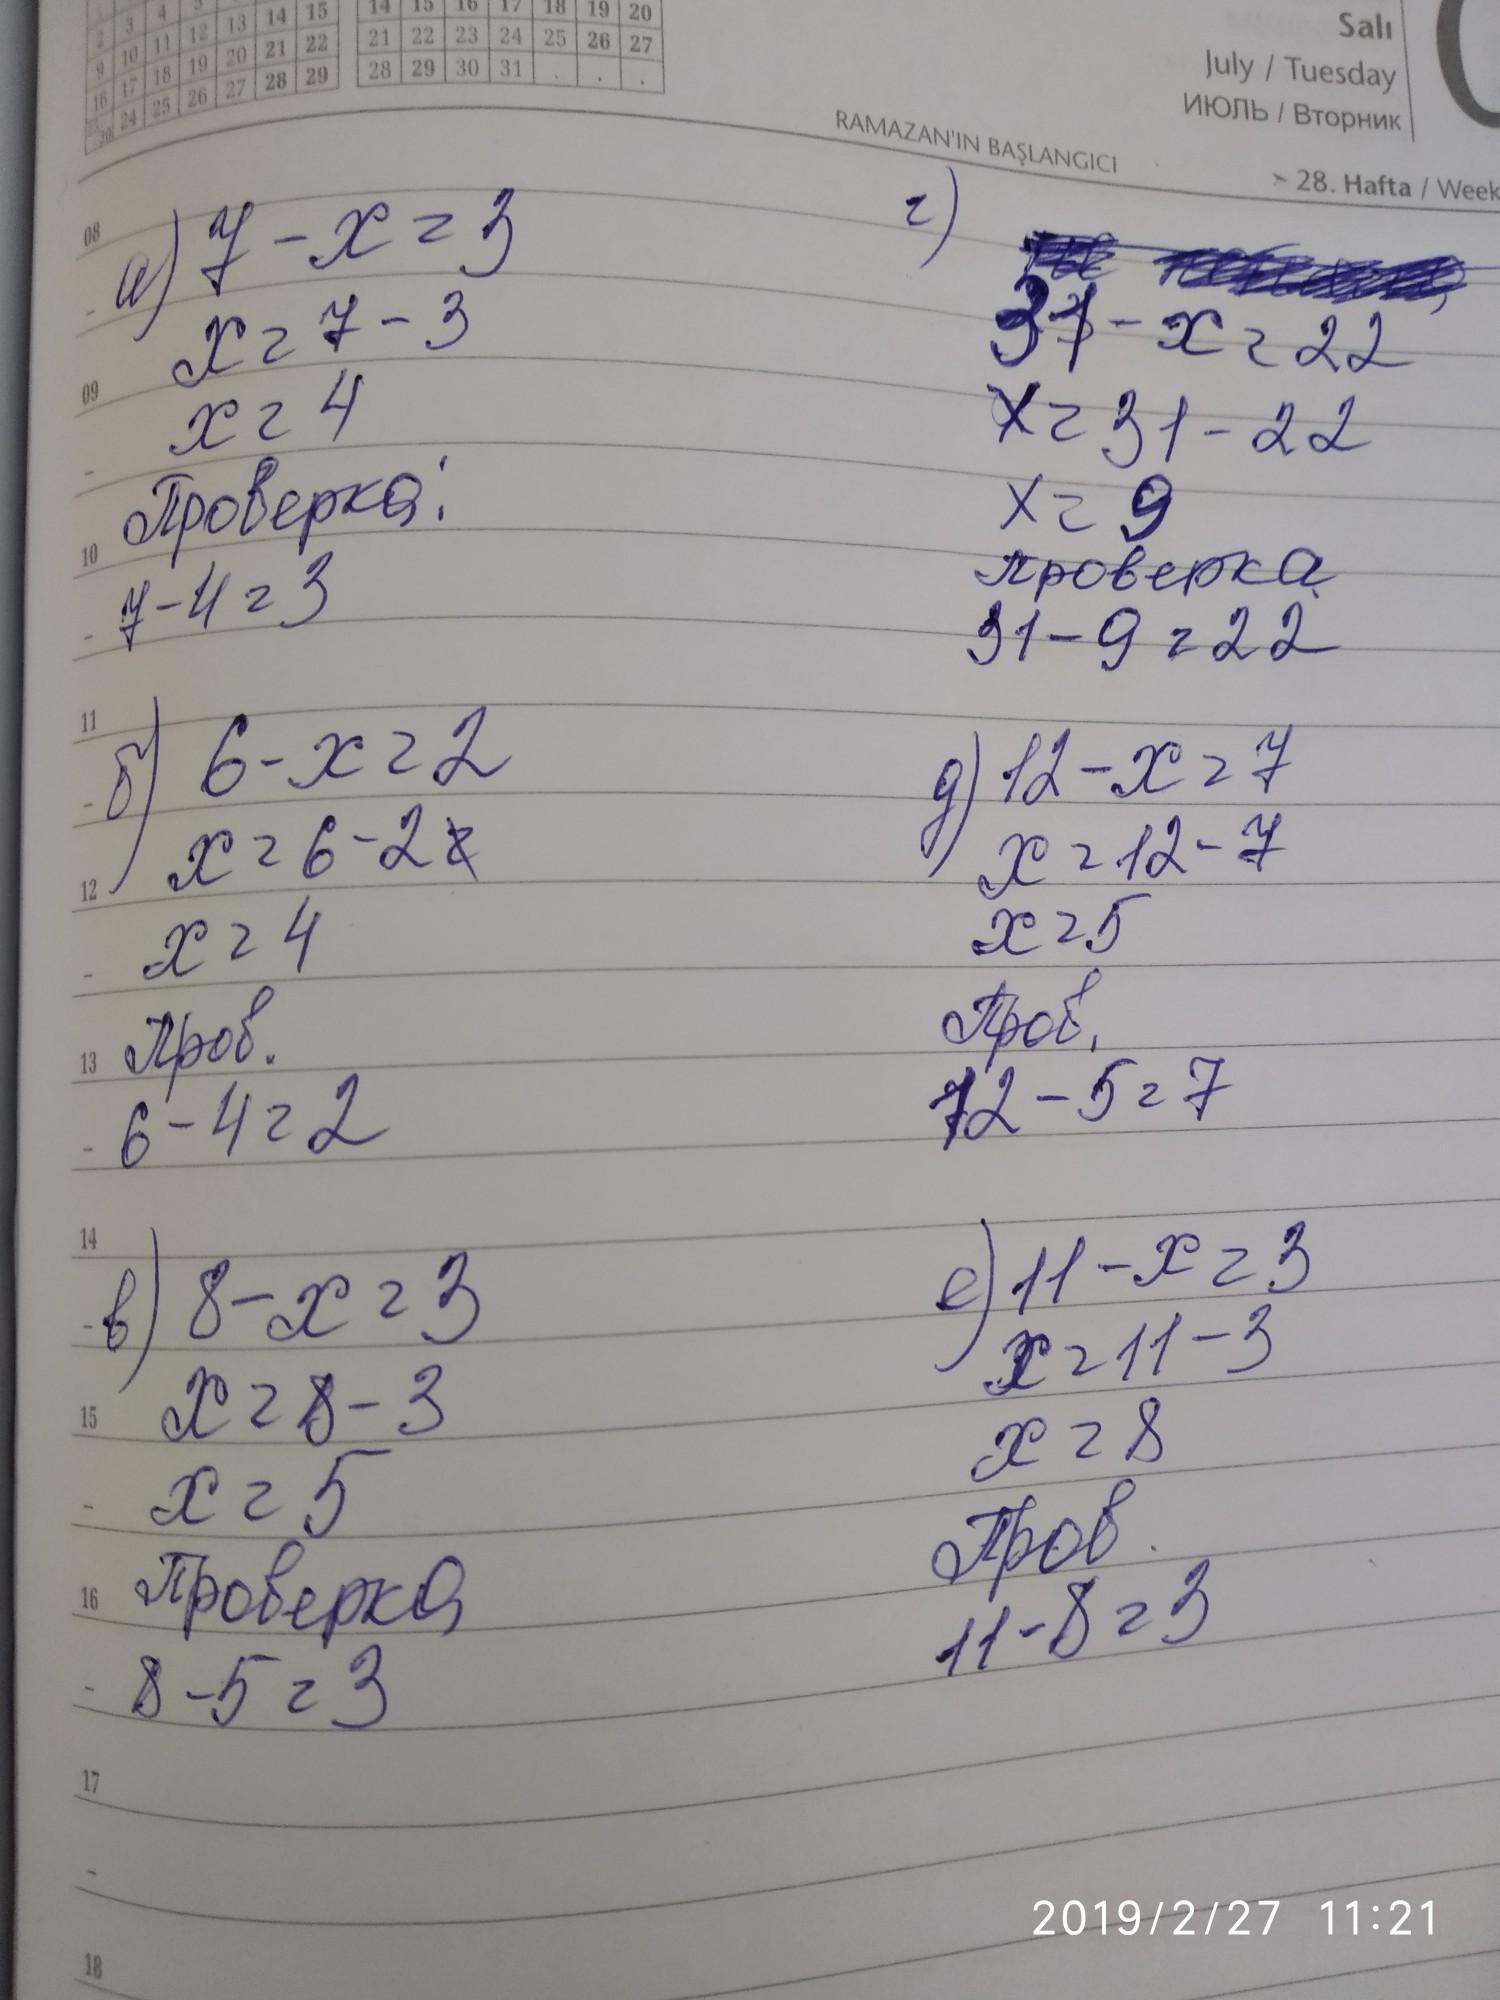 14 15 16 17 18 19 20
21 22 23 24 25 26 27
28 29 30 31 . . .
3 4 5
2 3 4
9 10 11 12 13 14 15
16 17 18 19 20 21 22
24 25 26 27 28 29
Salı
July / Tuesday
ИЮЛЬ / Вторник
RAMAZAN'IN BAŞLANGICI
28. Hafta / Week
08
а) 7 - x = 3
x = 7 - 3
09
x = 4
Проверка:
10
7 - 4 = 3
11
б) 6 - x = 2
x = 6 - 2
12
x = 4
Пров.
13
6 - 4 = 2
14
в) 8 - x = 3
x = 8 - 3
15
x = 5
Проверка
16
8 - 5 = 3
17
18
г)
31 - x = 22
x = 31 - 22
x = 9
проверка
31 - 9 = 22
д) 12 - x = 7
x = 12 - 7
x = 5
Пров.
12 - 5 = 7
е) 11 - x = 3
x = 11 - 3
x = 8
Пров.
11 - 8 = 3
2019/2/27 11:21